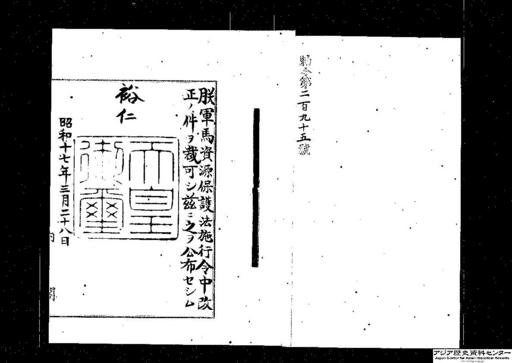 勅令第二百九十五號
朕軍馬資源保護法施行令中改
正ノ件ヲ裁可シ茲ニ之ヲ公布セシム
裕仁
天皇
御璽
昭和十七年三月二十八日
アジア歴史資料センター
Japan Center for Asian Historical Records